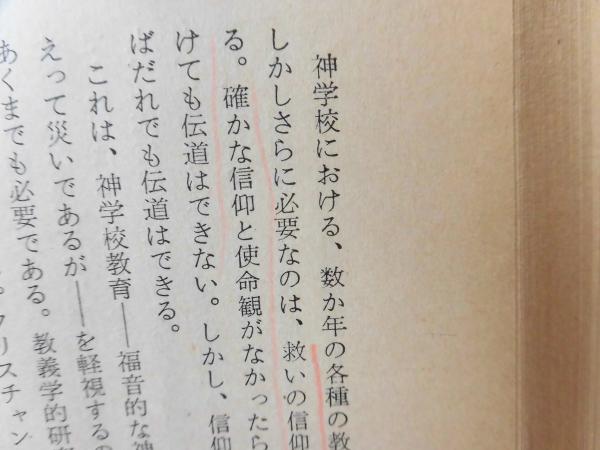 神学校における、数か年の各種の教
しかしさらに必要なのは、救いの信仰
る。確かな信仰と使命観がなかったら
けても伝道はできない。しかし、信仰
ばだれでも伝道はできる。
これは、神学校教育――福音的な神
えって災いであるが――を軽視するの
あくまでも必要である。教義学的研
クリスチャン